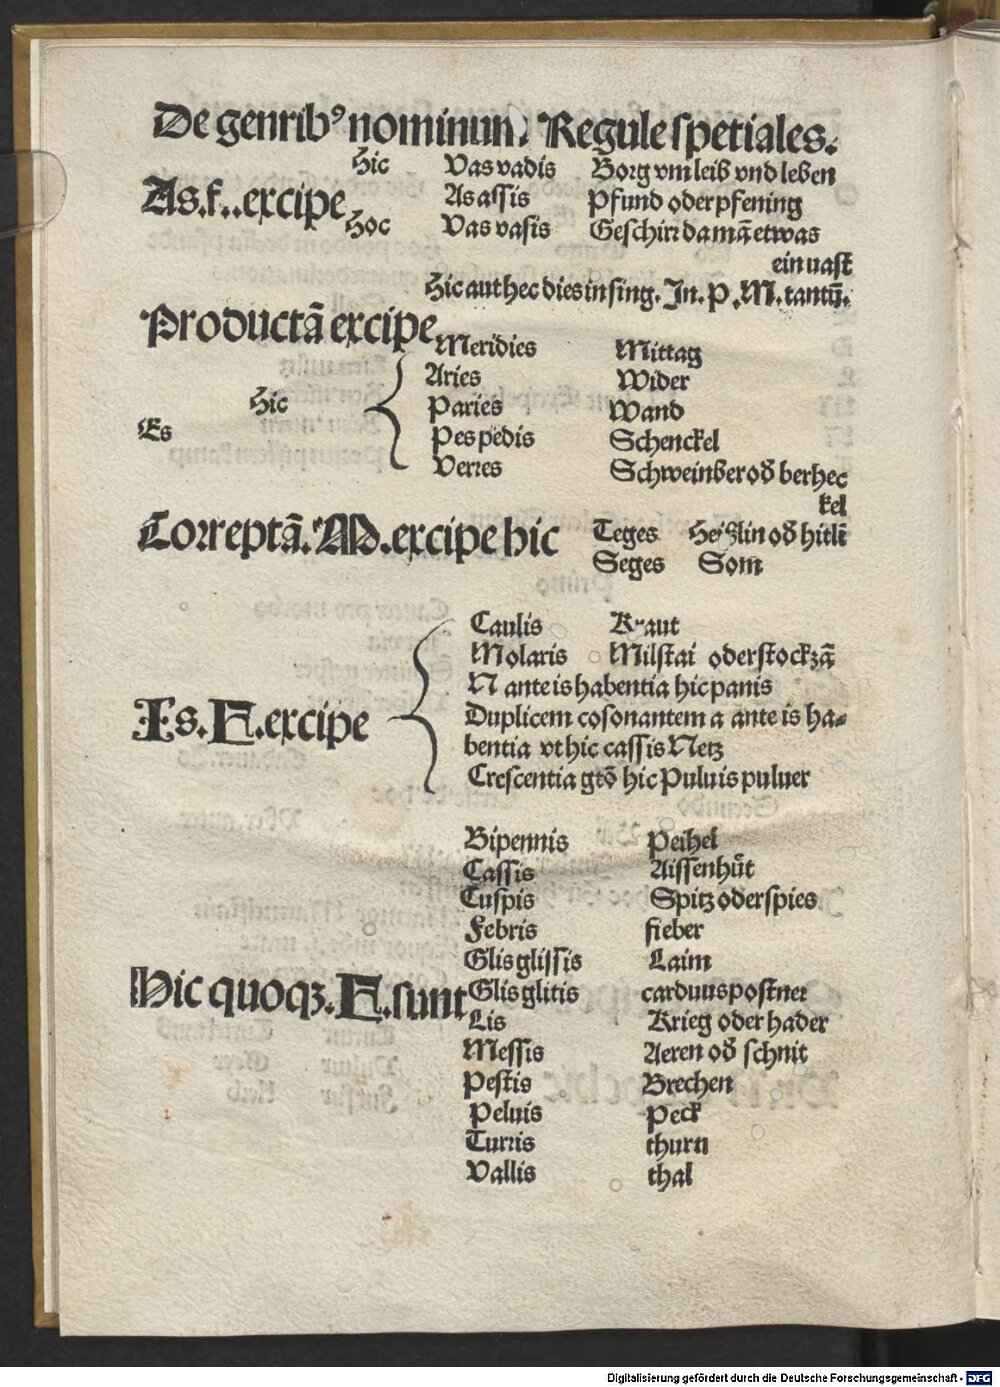 De genrib⁹ nominum. Regule spetiales.
Hic Vas vadis Borg vm leib vnd leben
As.f..excipe As assis Pfund oder pfening
Hoc Vas vasis Geschirr da mā etwas
ein vast
Hic aut hec dies in sing. In. P. M. tantū.
Productā excipe
Meridies Mittag
Aries Wider
Hic Paries Wand
Es Pes pedis Schenckel
Verres Schweinber od̄ berhec
kel
Correptā. M. excipe hic Teges Heißlin od̄ hitlī
Seges Som
Caulis Kraut
Molaris Milstai oder stockzā
N ante is habentia hic panis
Is. F. excipe Duplicem cōsonantem a ante is ha⸗
bentia vt hic cassis Netz
Crescentia gtō hic Puluis puluer
Bipennis Peihel
Cassis Aissenhůt
Cuspis Spitz oder spies
Febris fieber
Glis glissis Laim
Hic quoqꝫ. F. sunt Glis glitis carduus postner
Lis Krieg oder hader
Messis Aeren od̄ schnit
Pestis Brechen
Peluis Peck
Turris thurn
Vallis thal
Digitalisierung gefördert durch die Deutsche Forschungsgemeinschaft - DFG